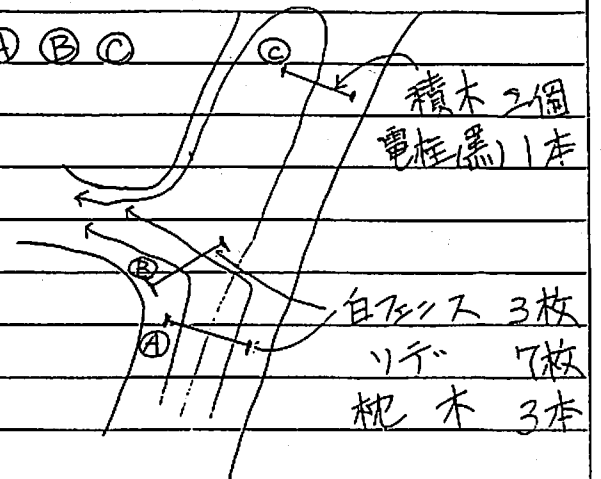 Ⓐ Ⓑ Ⓒ
Ⓒ
積木 2個
電柱(黒) 1本
Ⓑ
白フェンス 3枚
Ⓐ
ソデ 7枚
枕木 3本